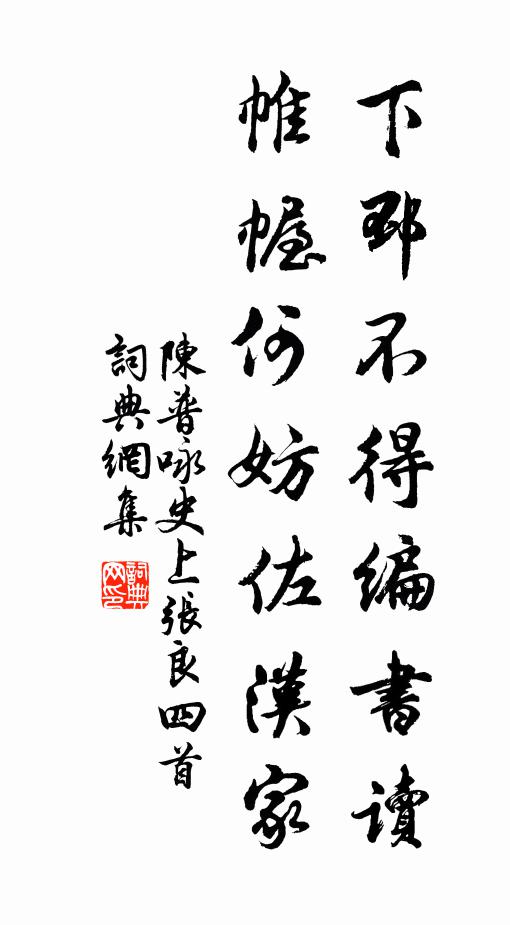 下邳不得編書讀
帷幄何妨佐漢家
陳普咏史上張良四首
詞典網集
詞典
网印